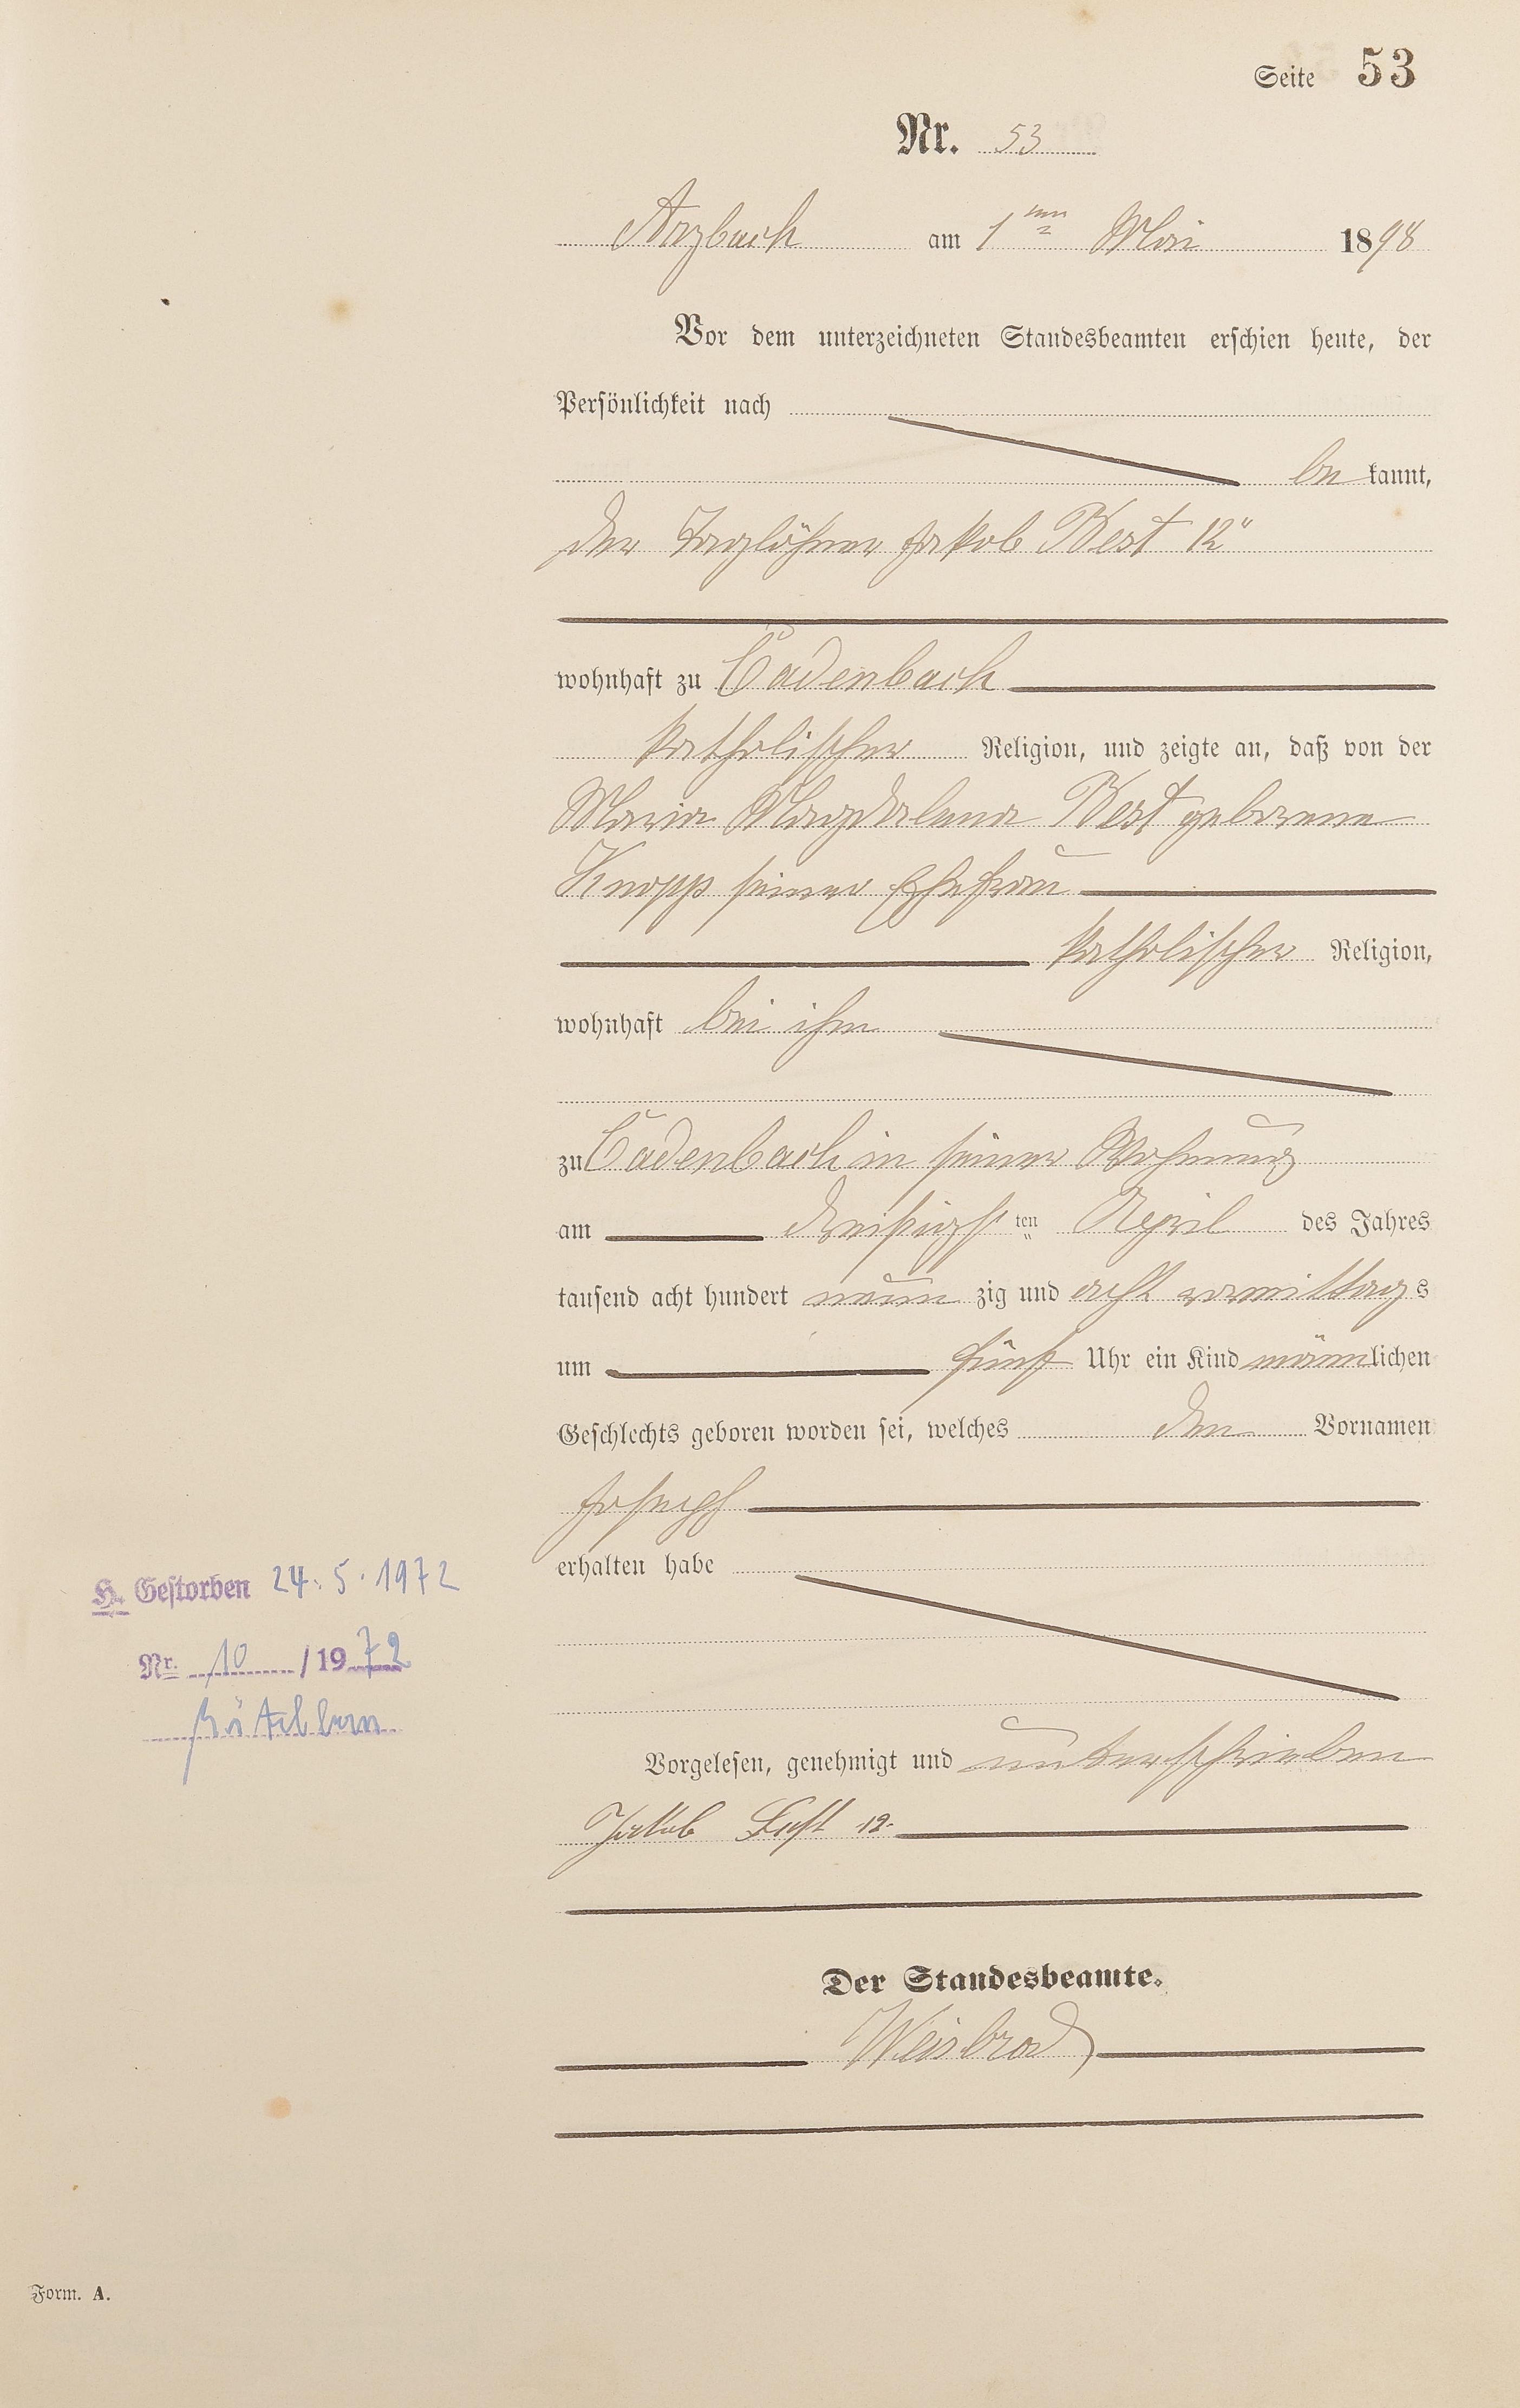 Seite 53
Nr. 53
Arzbach am 1ten Mai 1898
Vor dem unterzeichneten Standesbeamten erschien heute, der
Persönlichkeit nach
be kannt,
der Taglöhner Jakob Best 12"
wohnhaft zu Cadenbach
katholischer Religion, und zeigte an, daß von der
Maria Magdalena Best geborene
Knopp seiner Ehefrau
katholischer Religion,
wohnhaft bei ihm
zu Cadenbach in seiner Wohnung
am dreißigsten April des Jahres
tausend acht hundert neunzig und acht vormittags
um fünf Uhr ein Kind männlichen
Geschlechts geboren worden sei, welches den Vornamen
Joseph
erhalten habe
H. Gestorben 24.5.1972
Nr. 10 / 1972
Vorgelesen, genehmigt und unterschrieben
Jakob Best 12.
Der Standesbeamte.
Weisbrod
Form. A.